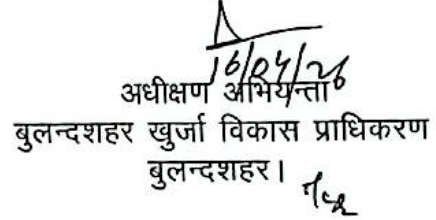 16/04/26
अधीक्षण अभियन्ता
बुलन्दशहर खुर्जा विकास प्राधिकरण
बुलन्दशहर।